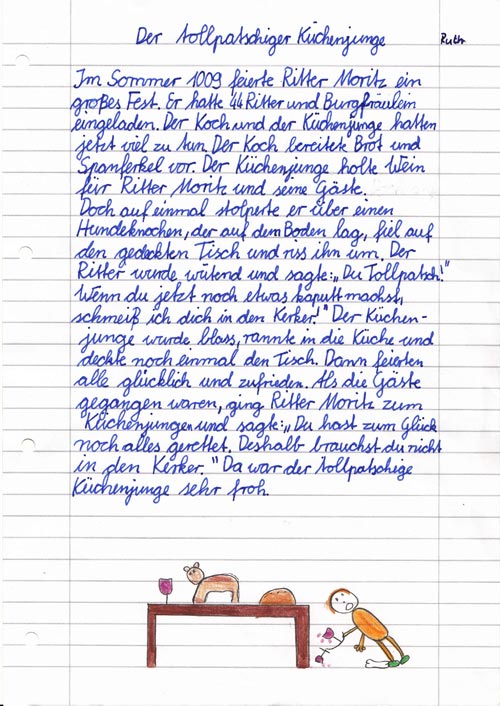 Der tollpatschiger Küchenjunge
Ruth
Im Sommer 1009 feierte Ritter Moritz ein
großes Fest. Er hatte 44 Ritter und Burgfräulein
eingeladen. Der Koch und der Küchenjunge hatten
jetzt viel zu tun. Der Koch bereitete Brot und
Spanferkel vor. Der Küchenjunge holte Wein
für Ritter Moritz und seine Gäste.
Doch auf einmal stolperte er über einen
Hundeknochen, der auf dem Boden lag, fiel auf
den gedeckten Tisch und riss ihn um. Der
Ritter wurde wütend und sagte: „Du Tollpatsch!"
Wenn du jetzt noch etwas kaputt machst,
schmeiß ich dich in den Kerker!" Der Küchen-
junge wurde blass, rannte in die Küche und
deckte noch einmal den Tisch. Dann feierten
alle glücklich und zufrieden. Als die Gäste
gegangen waren, ging Ritter Moritz zum
Küchenjungen und sagte: „Du hast zum Glück
noch alles gerettet. Deshalb brauchst du nicht
in den Kerker." Da war der tollpatschige
Küchenjunge sehr froh.